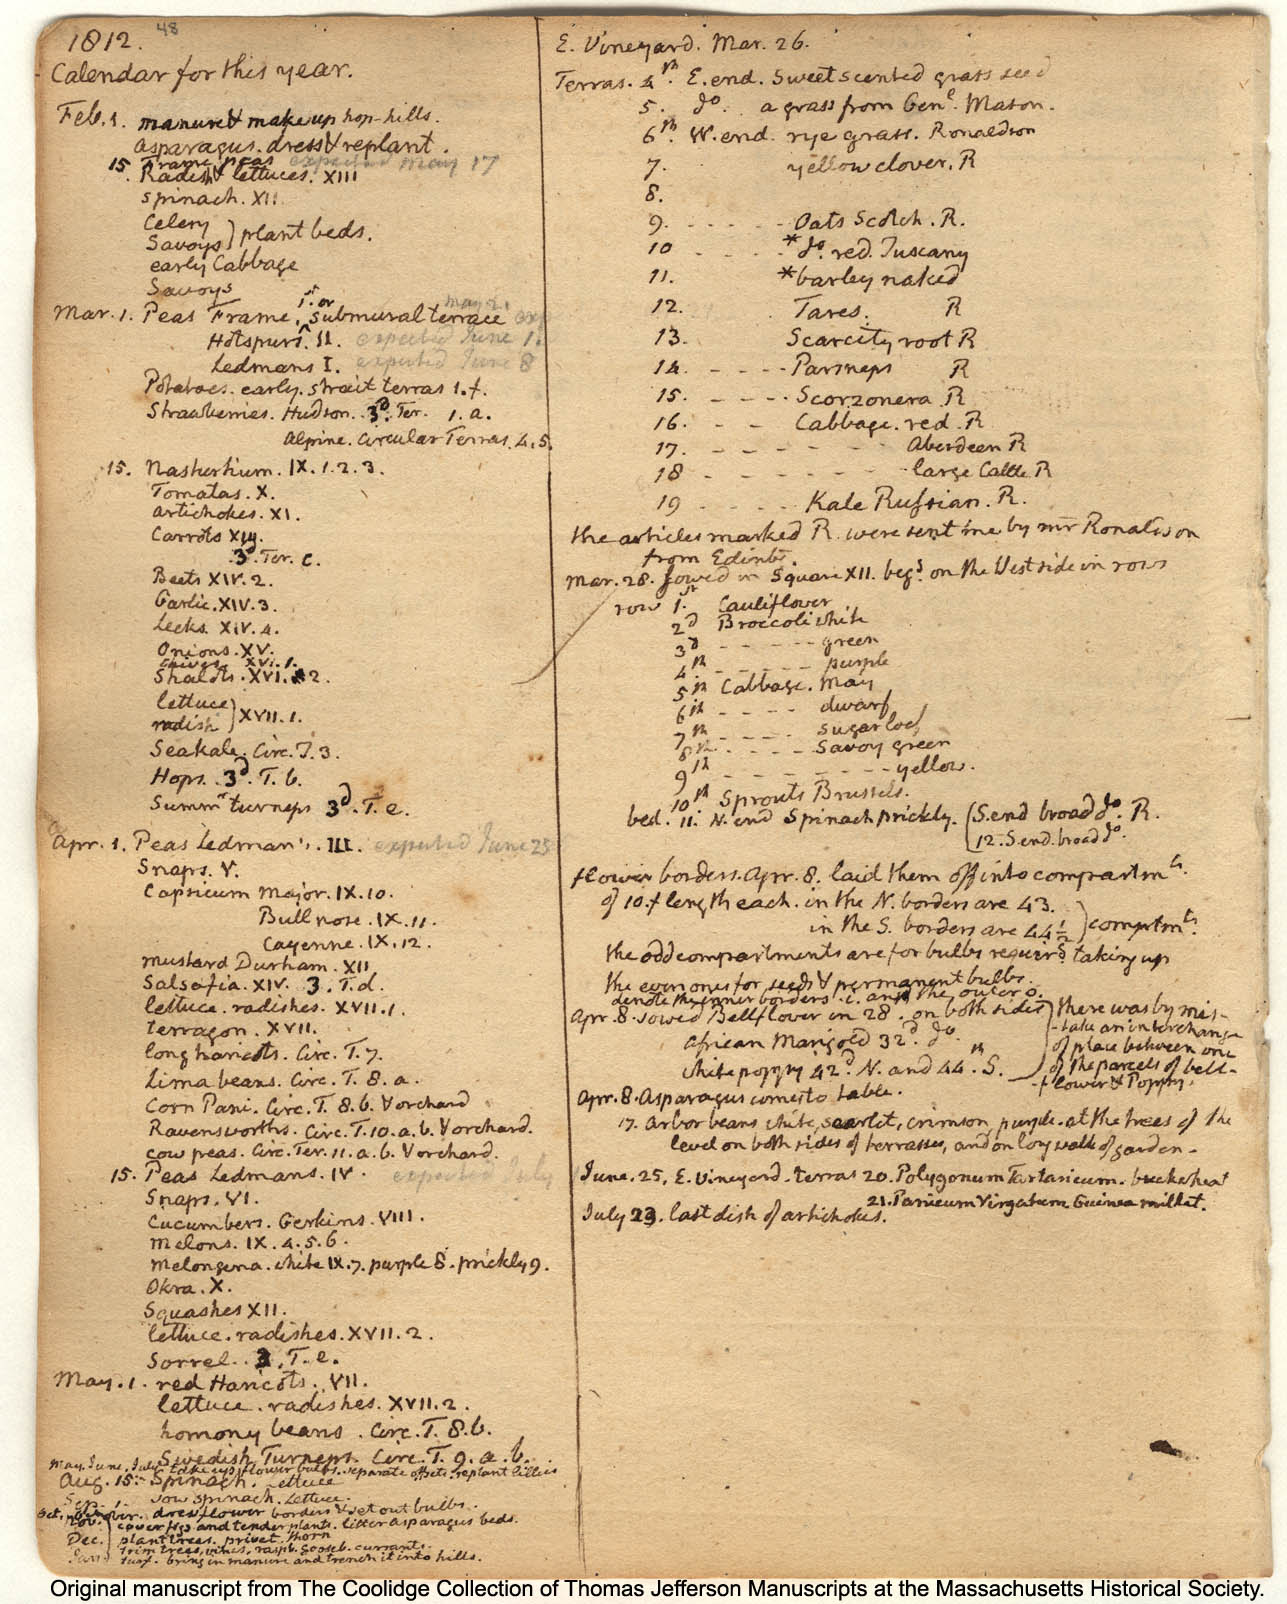 48
1812.
Calendar for this year.
Feb. 1. manure & make up hop-hills.
asparagus. dress & replant.
15. Frame peas expected May 17
Radish & lettuces. XIII
Spinach. XII
Celery
Savoys } plant beds.
early Cabbage
Savoys
Mar. 1. Peas Frame. 1st or Submural terrace May 21.
Hotspurs. II. expected June 1.
Ledmans I. expected June 8
Potatoes. early. strait terras 1.f.
Strawberries. Hudson. 3d. Ter. 1. a.
Alpine. Circular Terras. 4.5.
15. Nasturtium. IX. 1. 2. 3.
Tomatas. X.
artichokes. XI.
Carrots XIV.
3d. Ter. c.
Beets XIV. 2.
Garlic. XIV. 3.
Leeks. XIV. 4.
Onions. XV.
chives. XVI. 1.
Shalots. XVI. 2.
lettuce
radish } XVII. 1.
Seakale. Circ. T. 3.
Hops. 3d. T. b.
Summr. turneps 3d. T. e.
Apr. 1. Peas Ledman's. III. expected June 25
Snaps. V.
Capsicum Major. IX. 10.
Bull nose. IX. 11.
Cayenne. IX. 12.
mustard Durham. XII
Salsafia. XIV. 3. T. d.
lettuce. radishes. XVII. 1.
terragon. XVII.
long haricots. Circ. T. 7.
Lima beans. Circ. T. 8. a.
Corn Pani. Circ. T. 8. b. & orchard
Ravensworths. Circ. T. 10. a. b. & orchard.
cow peas. Circ. Ter. 11. a. b. & orchard.
15. Peas Ledmans. IV. expected July
Snaps. VI.
Cucumbers. Gerkins. VIII.
Melons. IX. 4. 5. 6.
Melongena. white IX. 7. purple 8. prickly 9.
Okra. X.
Squashes XII.
lettuce. radishes. XVII. 2.
Sorrel. 3. T. e.
May. 1. red Haricots. VII.
lettuce. radishes. XVII. 2.
homony beans. Circ. T. 8. b.
Swedish Turneps. Circ. T. 9. a. b.
May. June. July take up flower bulbs. separate offsets. replant lillies
Aug. 15. Spinach. lettuce
Sep. 1. sow spinach. lettuce.
Oct. dress flower borders & set out bulbs.
Nov. cover figs and tender plants. litter asparagus beds.
Dec. plant trees. privet. thorn
trim trees, vines, raspb. gooseb. currants.
turf. bring in manure and trench it into hills.
E. Vineyard. Mar. 26.
Terras. 4th. E. end. Sweet scented grass seed
5. do. a grass from Genl. Mason.
6th W. end. rye grass. Ronaldson
7. yellow clover. R
8.
9. - - - - - Oats Scotch. R.
10 - - - - *do. red. Tuscany
11. *barley naked
12. Tares. R
13. Scarcity root R
14. - - - - Parsneps R
15. - - - - Scorzonera R
16. - - Cabbage. red. R
17. - - - - - - Aberdeen R
18 - - - - - - large Cattle R
19 - - - - Kale Russian. R.
the articles marked R. were sent me by mr Ronaldson
from Edinbg.
Mar. 28. sowed in Square XII. begg. on the West side in rows
row 1.st Cauliflower
2d Broccoli white
3d - - - - - - green
4th - - - - - - purple
5th Cabbage. May
6th - - - - dwarf
7th - - - - sugarloaf
8th - - - - Savoy green
9th - - - - - - - - yellow.
10th Sprouts Brussels.
bed. 11. N. end Spinach prickly. { S. end broad do. R.
12. S. end. broad do.
flower borders. Apr. 8. laid them off into compartmts.
of 10.f length each. in the N. borders are 43.
in the S. borders are 44 1/2 } comprtmts.
the odd compartments are for bulbs requirg. taking up
the even ones for seeds & permanent bulbs.
denote the inner borders i. and the outer o.
Apr. 8. sowed Bellflower in 28. on both sides
African Marigold 32d. do.
white poppy 42d. N. and 44th. S.
there was by mis-
-take an interchange
of place between one
of the parcels of bell-
-flower & Poppy.
Apr. 8. Asparagus comes to table.
17. Arbor beans white, scarlet, crimson, purple. at the trees of the
level on both sides of terrasses, and on long walk of garden.
June. 25. E. Vineyard. terras 20. Polygonum Tartaricum. buckwheat
21. Panicum Virgatum Guinea millet.
July 23. last dish of artichokes.
Original manuscript from The Coolidge Collection of Thomas Jefferson Manuscripts at the Massachusetts Historical Society.